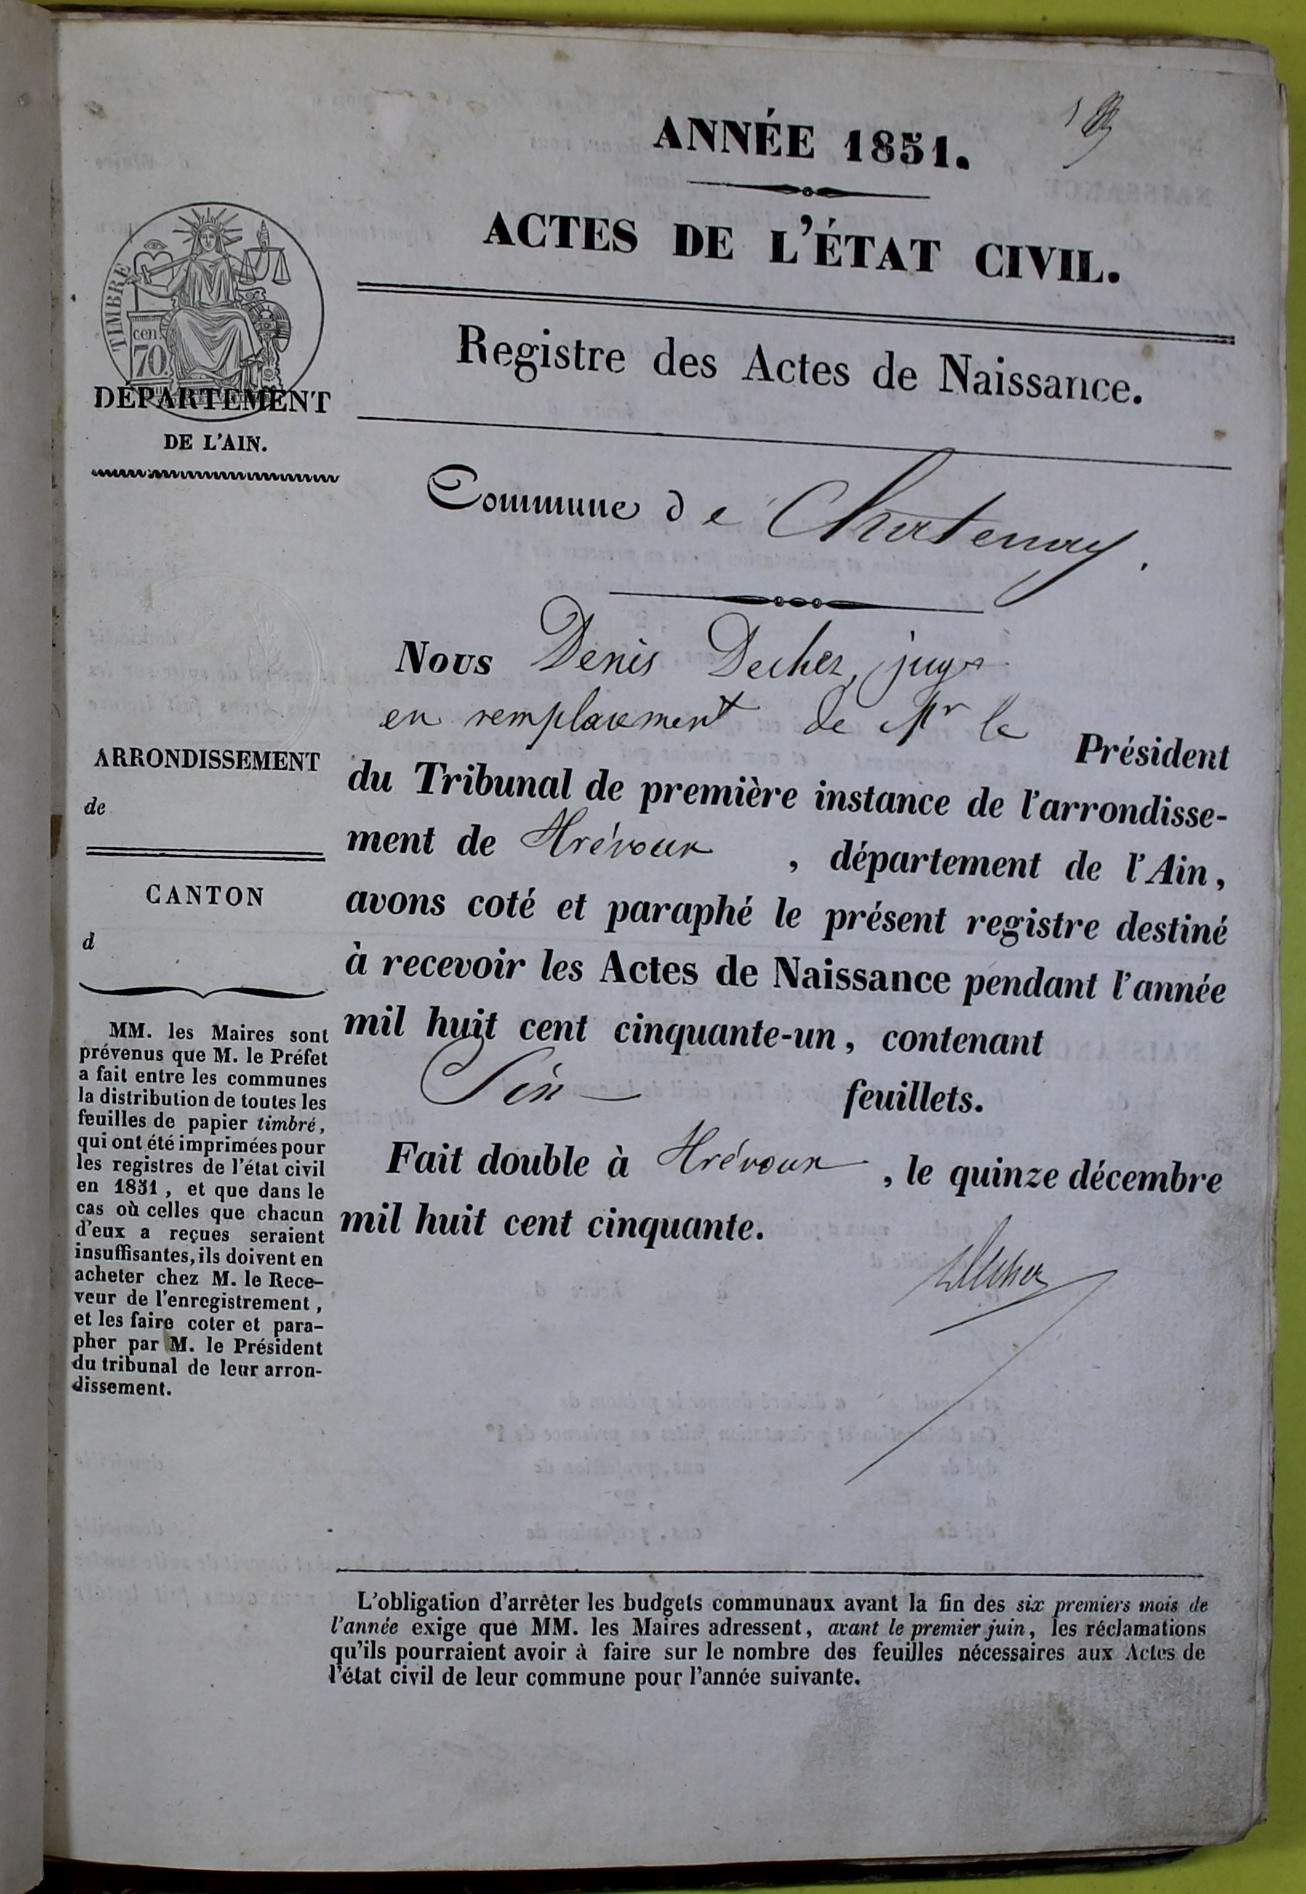 ANNÉE 1851.
ACTES DE L'ÉTAT CIVIL.
Registre des Actes de Naissance.
TIMBRE
cen
70
DÉPARTEMENT
DE L'AIN.
Commune de Chatenay.
Nous Denis Decher, juge
en remplacement de Mr le Président
du Tribunal de première instance de l'arrondisse-
ment de Trévoux, département de l'Ain,
avons coté et paraphé le présent registre destiné
à recevoir les Actes de Naissance pendant l'année
mil huit cent cinquante-un, contenant
Six feuillets.
Fait double à Trévoux, le quinze décembre
mil huit cent cinquante.
Decher
ARRONDISSEMENT
de
CANTON
d
MM. les Maires sont
prévenus que M. le Préfet
a fait entre les communes
la distribution de toutes les
feuilles de papier timbré,
qui ont été imprimées pour
les registres de l'état civil
en 1851, et que dans le
cas où celles que chacun
d'eux a reçues seraient
insuffisantes, ils doivent en
acheter chez M. le Rece-
veur de l'enregistrement,
et les faire coter et para-
pher par M. le Président
du tribunal de leur arron-
dissement.
L'obligation d'arrêter les budgets communaux avant la fin des six premiers mois de
l'année exige que MM. les Maires adressent, avant le premier juin, les réclamations
qu'ils pourraient avoir à faire sur le nombre des feuilles nécessaires aux Actes de
l'état civil de leur commune pour l'année suivante.